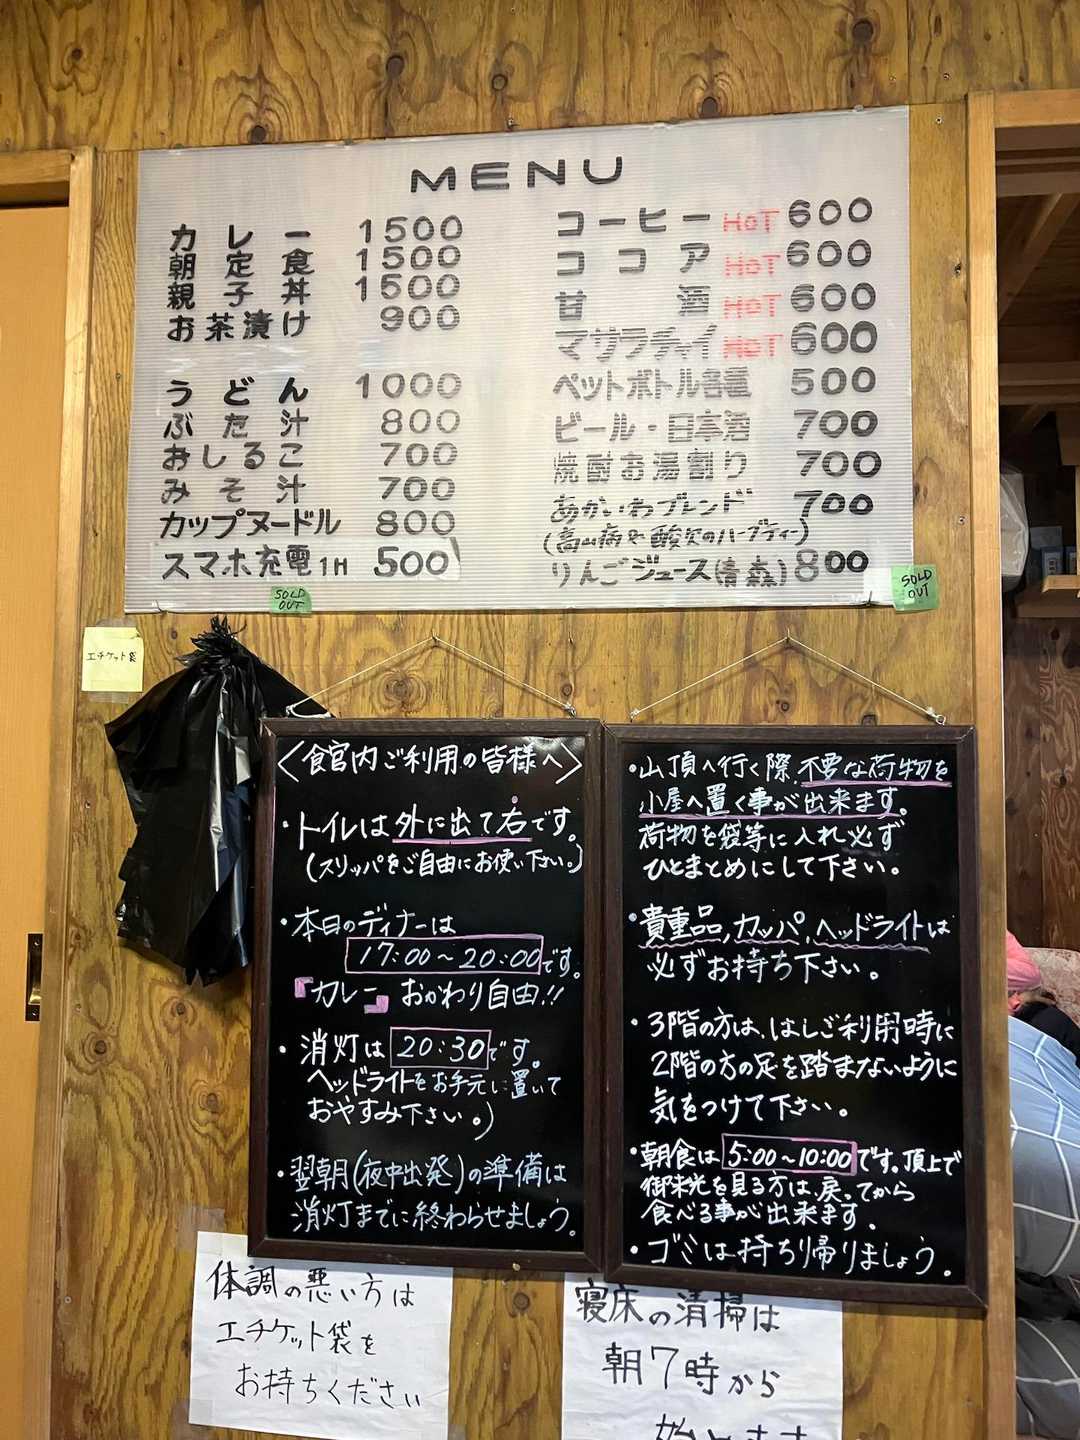 MENU
カレー 1500
朝定食 1500
親子丼 1500
お茶漬け 900
うどん 1000
ぶた汁 800
おしるこ 700
みそ汁 700
カップヌードル 800
スマホ充電1H 500
SOLD
OUT
コーヒー HOT 600
ココア HOT 600
甘酒 HOT 600
マサラチャイ HOT 600
ペットボトル各種 500
ビール・日本酒 700
焼酎お湯割り 700
あかいわブレンド 700
(高山病や酸欠のハーブティー)
りんごジュース(青森) 800
SOLD
OUT
エチケット袋
〈食官内ご利用の皆様へ〉
・トイレは外に出て右です。
(スリッパをご自由にお使い下さい。)
・本日のディナーは
17:00～20:00です。
『カレー』おかわり自由!!
・消灯は20:30です。
ヘッドライトをお手元に置いて
おやすみ下さい。)
・翌朝(夜中出発)の準備は
消灯までに終わらせましょう。
・山頂へ行く際、不要な荷物を
小屋へ置く事が出来ます。
荷物を袋等に入れ必ず
ひとまとめにして下さい。
・貴重品,カッパ,ヘッドライトは
必ずお持ち下さい。
・3階の方は、はしご利用時に
2階の方の足を踏まないように
気をつけて下さい。
・朝食は5:00～10:00です。頂上で
御来光を見る方は、戻ってから
食べる事が出来ます。
・ゴミは持ち帰りましょう。
体調の悪い方は
エチケット袋を
お持ちください
寝床の清掃は
朝7時から
始まります